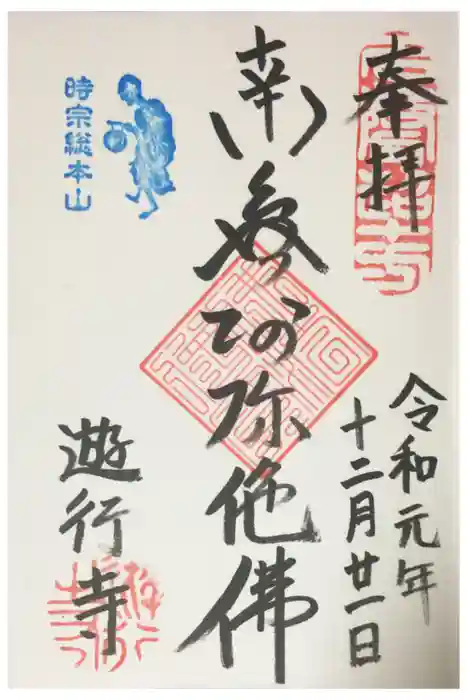 奉拝
令和元年
十二月廿一日
南無阿弥陀佛
時宗総本山
遊行寺